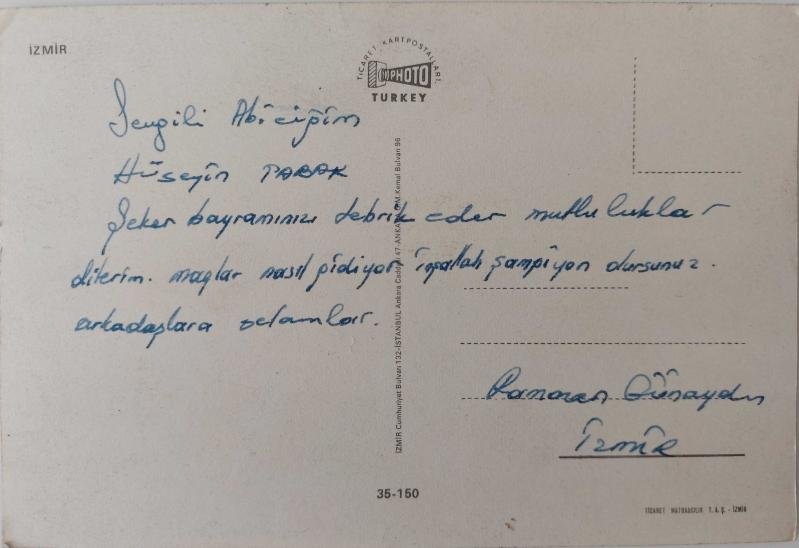 İZMİR
TİCARET KARTPOSTALLARI.
PHOTO
TURKEY
Sevgili Abiciğim
Hüseyin TABAK
Şeker bayramınızı tebrik eder mutluluklar
dilerim. maçlar nasıl gidiyor inşallah şampiyon olursunuz.
arkadaşlara selamlar.
Günaydın
İzmir
İZMİR Cumhuriyet Bulvarı 132-İSTANBUL Ankara Caddesi 147-ANKARA G.M.Kemal Bulvarı 96
35-150
TİCARET MATBAACILIK T.A.Ş. - İZMİR